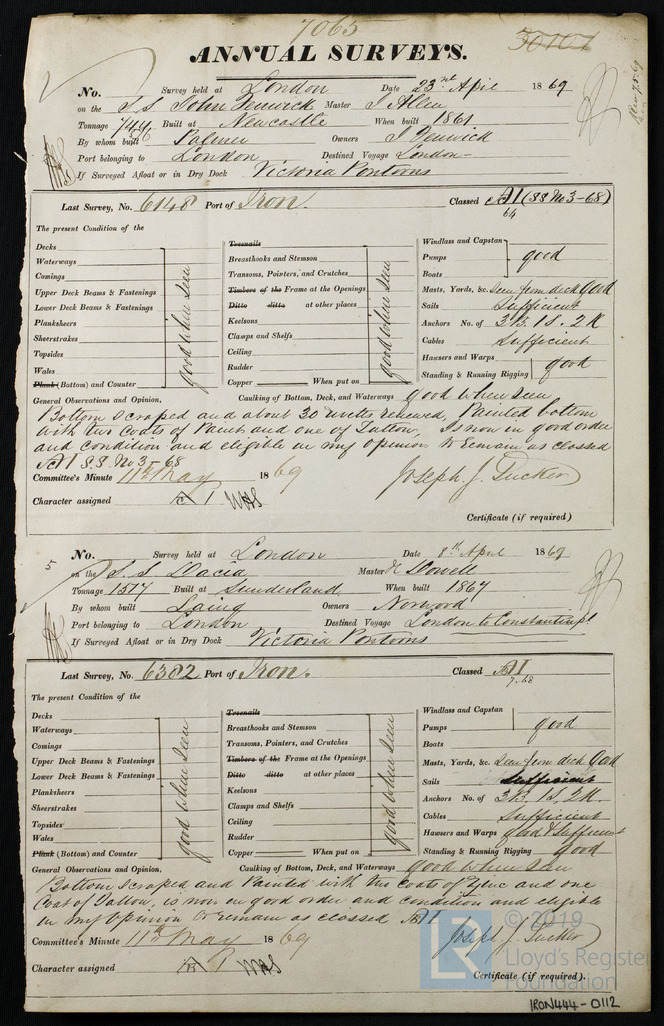 7065
30107
ANNUAL SURVEYS.
No. Survey held at London Date 23rd April 1869
on the S.S. John Fenwick Master J Allen
Tonnage 744 Built at Newcastle When built 1861
By whom built Palmer Owners J Fenwick
Port belonging to London Destined Voyage London
If Surveyed Afloat or in Dry Dock Victoria Pontoons
Last Survey, No. 6148 Port of Iron. Classed A1 (SS No 3-68)
64
The present Condition of the
Decks
Waterways
Comings
Upper Deck Beams & Fastenings
Lower Deck Beams & Fastenings
Planksheers
Sheerstrakes
Topsides
Wales
Plank (Bottom) and Counter
good when seen
Treenails
Breasthooks and Stemson
Transoms, Pointers, and Crutches
Timbers of the Frame at the Openings
Ditto ditto at other places
Keelsons
Clamps and Shelfs
Ceiling
Rudder
Copper When put on
good when seen
Windlass and Capstan
Pumps good
Boats
Masts, Yards, &c. seen from deck Good
Sails Sufficient
Anchors No. of 3B. 1S. 2K
Cables Sufficient
Hawsers and Warps
Standing & Running Rigging good
General Observations and Opinion, Caulking of Bottom, Deck, and Waterways good when seen
Bottom scraped and about 30 rivets renewed, Painted bottom
with two coats of Paint and one of Tallow, Is now in good order
and condition and eligible in my opinion to remain as classed
A1 S.S. No 3-68
Committee's Minute 11th May 1869 Joseph J. Tucker
Character assigned A 1
Certificate (if required)
5
No. Survey held at London Date 8th April 1869
on the S.S. Dacia Master Dowell
Tonnage 1317 Built at Sunderland When built 1867
By whom built Laing Owners Norwood
Port belonging to London Destined Voyage London to Constantinpl
If Surveyed Afloat or in Dry Dock Victoria Pontoons
Last Survey, No. 6382 Port of Iron. Classed A1
7.68
The present Condition of the
Decks
Waterways
Comings
Upper Deck Beams & Fastenings
Lower Deck Beams & Fastenings
Planksheers
Sheerstrakes
Topsides
Wales
Plank (Bottom) and Counter
good when seen
Treenails
Breasthooks and Stemson
Transoms, Pointers, and Crutches
Timbers of the Frame at the Openings
Ditto ditto at other places
Keelsons
Clamps and Shelfs
Ceiling
Rudder
Copper When put on
good when seen
Windlass and Capstan
Pumps good
Boats
Masts, Yards, &c. seen from deck Good
Sails Sufficient
Anchors No. of 3B. 1S. 2K.
Cables Sufficient
Hawsers and Warps good & sufficient
Standing & Running Rigging good
General Observations and Opinion, Caulking of Bottom, Deck, and Waterways good when seen
Bottom scraped and Painted with two coats of Zinc and one
Coat of Tallow, is now in good order and condition and eligible
in my opinion to remain as classed A1
Committee's Minute 11th May 1869 Joseph J. Tucker
Character assigned A 1
Certificate (if required).
© 2019
Lloyd's Register
Foundation
IRON444-0112